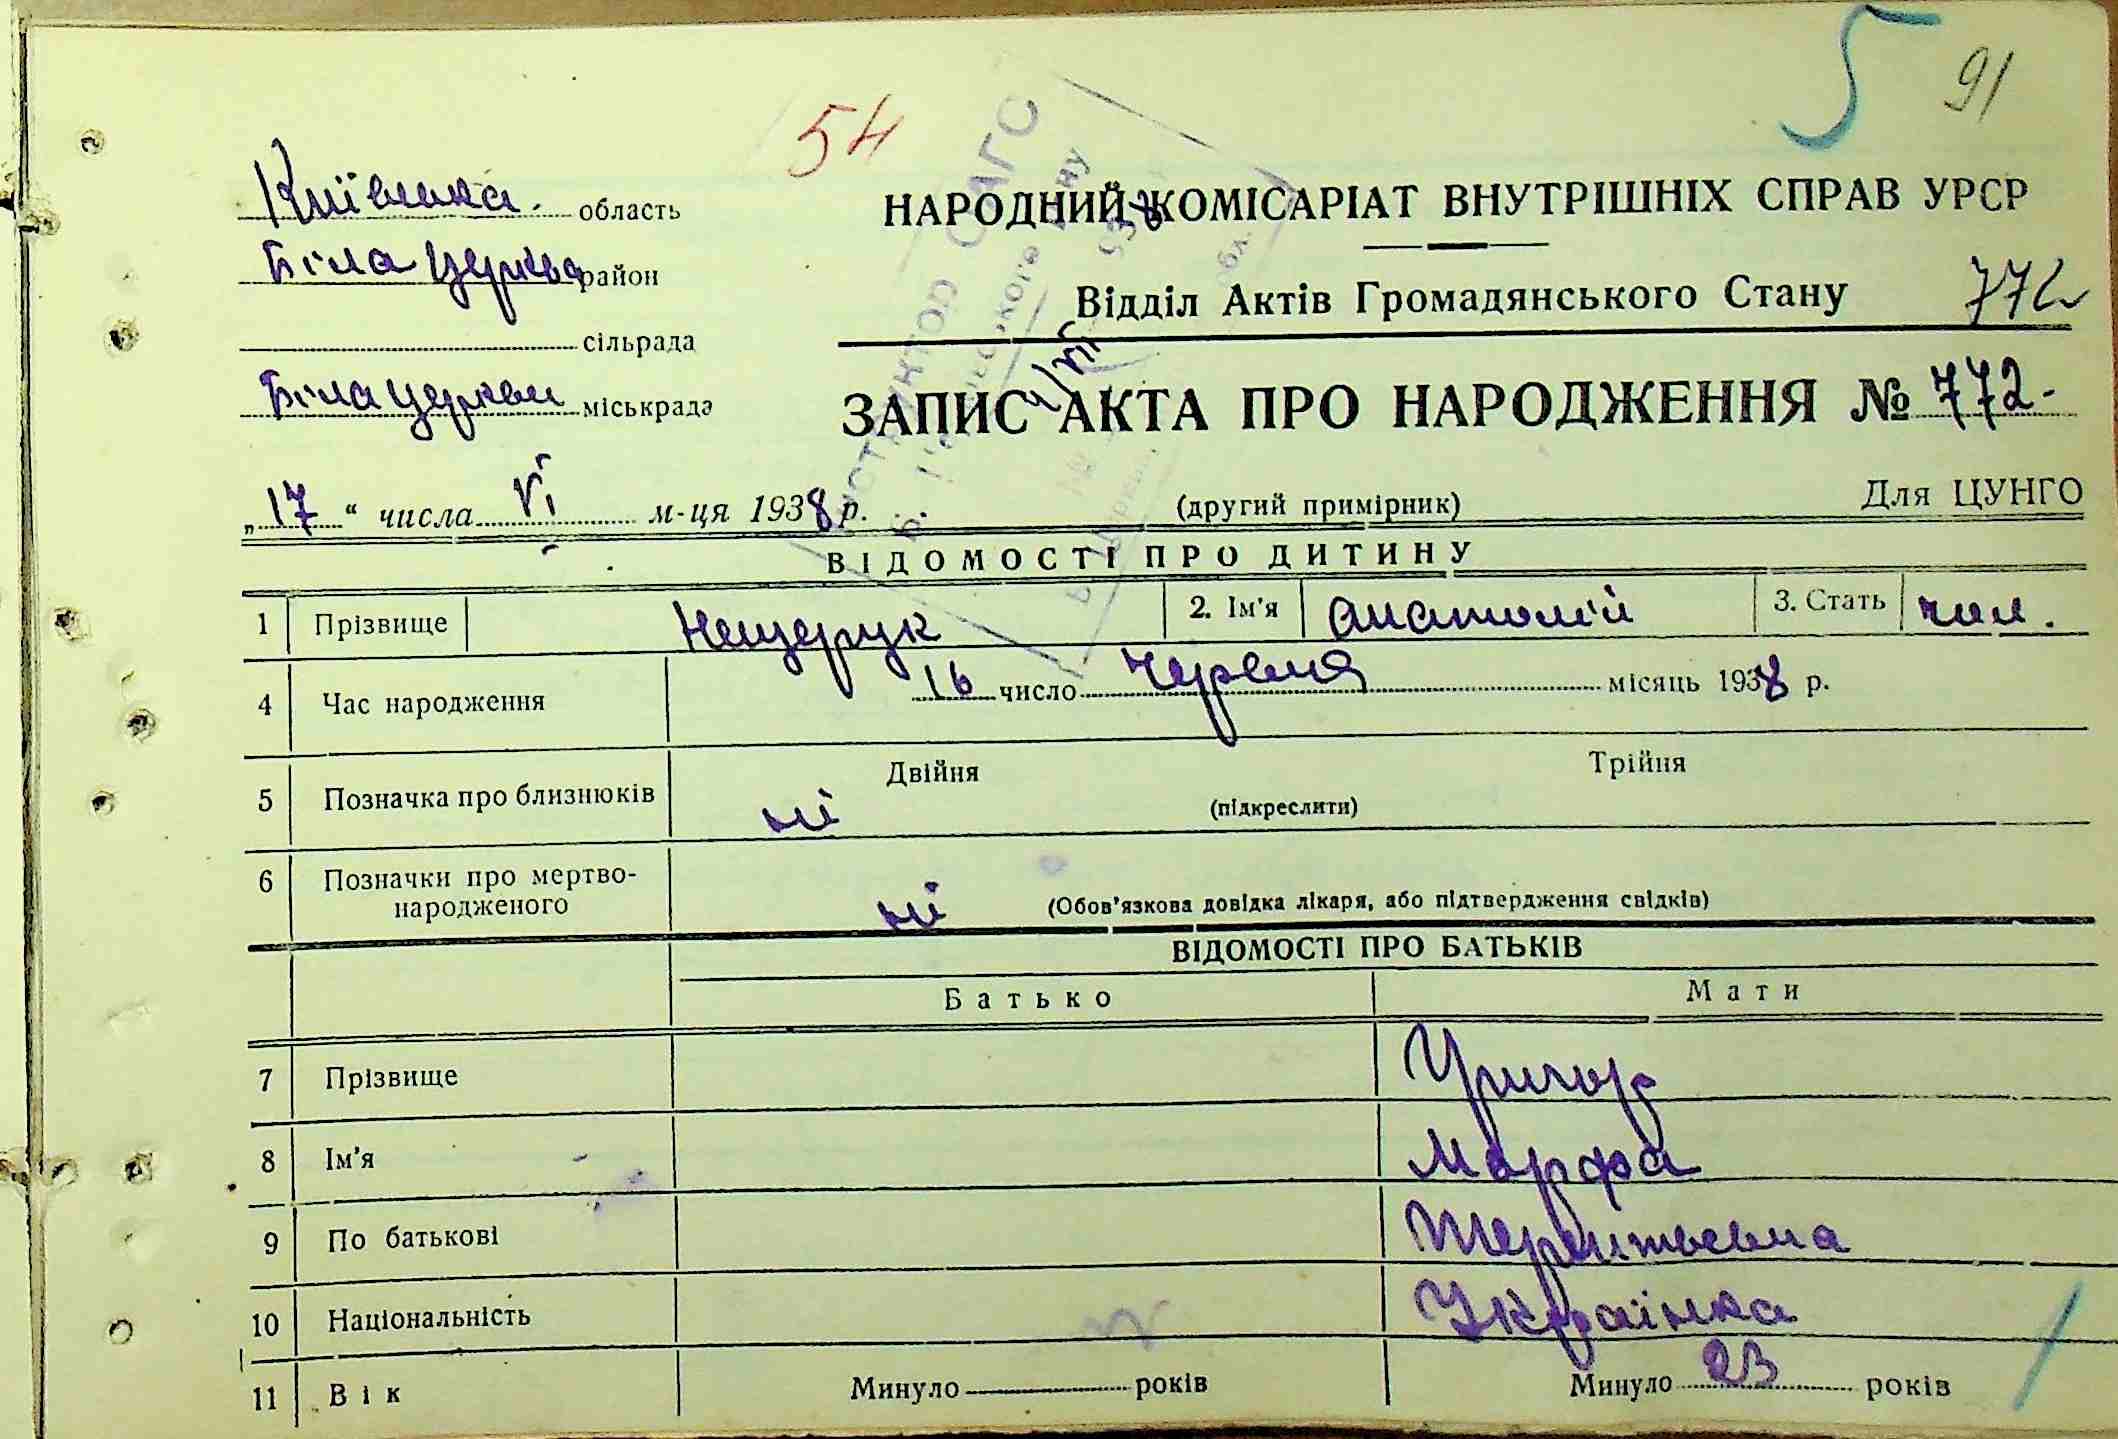 5 91
54
Київська область
НАРОДНИЙ КОМІСАРІАТ ВНУТРІШНІХ СПРАВ УРСР
Біла Церква район
Відділ Актів Громадянського Стану 772
сільрада
Біла Церква міськрада
ЗАПИС АКТА ПРО НАРОДЖЕННЯ № 772.
„17“ числа VI м-ця 1938 р. (другий примірник) Для ЦУНГО
ВІДОМОСТІ ПРО ДИТИНУ
1 Прізвище Нещерук 2. Ім'я Анатолій 3. Стать чол.
4 Час народження 16 число Червня місяць 1938 р.
5 Позначка про близнюків ні Двійня (підкреслити) Трійня
6 Позначки про мертво-
народженого ні (Обов'язкова довідка лікаря, або підтвердження свідків)
ВІДОМОСТІ ПРО БАТЬКІВ
Батько Мати
7 Прізвище
8 Ім'я Марфа
9 По батькові Терентьевна
10 Національність Українка
11 Вік Минуло років Минуло 23 років